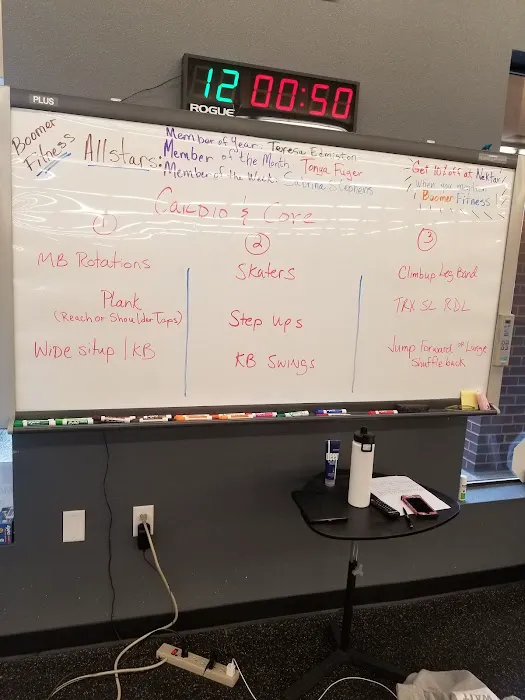 12 00:50
ROGUE
PLUS
Boomer
Fitness
Allstars:
Member of Year: Teresa Edmigton
Member of the Month Tonya Fuger
Member of the Week: Sabrina Stephens
Get 10% off at Nektar
when you
Boomer Fitness
Cardio & Core
1
MB Rotations
Plank
(Reach or Shoulder Taps)
Wide situp / KB
2
Skaters
Step Ups
KB Swings
3
Climbup Leg Band
TRX SL RDL
Jump Forward or Lunge
Shuffle back